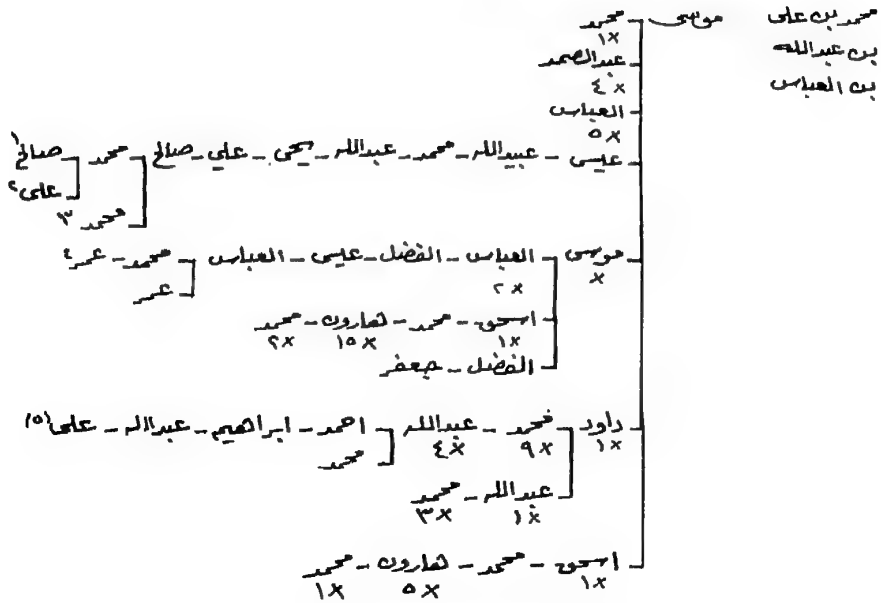 محمد بن على موسى محمد
بن عبدالله ×١
بن العباس عبدالصمد
×٤
العباس
×٥
عيسى - عبيدالله - محمد - عبدالله - يحى - علي - صالح محمد صالح١
على٢
محمد ٣
موسى العباس - الفضل - عيسى - العباس محمد - عمر٤
× ×٢ عمر
اسحق - محمد - هارون - محمد
×١ ×١٥ ×٢
الفضل - جعفر
داود محمد - عبدالله احمد - ابراهيم - عبدالله - على(٥)
×١ ×٩ ×٤ محمد
عبدالله - محمد
×١ ×٣
اسحق - محمد - هارون - محمد
×١ ×٥ ×١